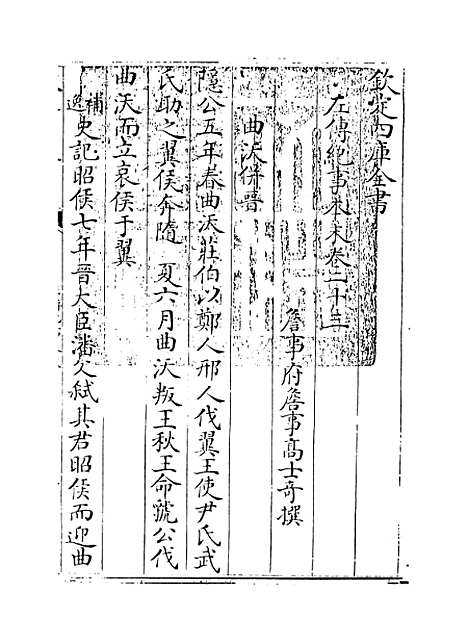 欽定四庫全書
左傳紀事本末卷二十三
詹事府詹事高士奇撰
曲沃併晉
隱公五年春曲沃莊伯以鄭人邢人伐翼王使尹氏武
氏助之翼侯奔隨　夏六月曲沃叛王秋王命虢公伐
曲沃而立哀侯于翼
補逸史記昭侯七年晉大臣潘父弑其君昭侯而迎曲